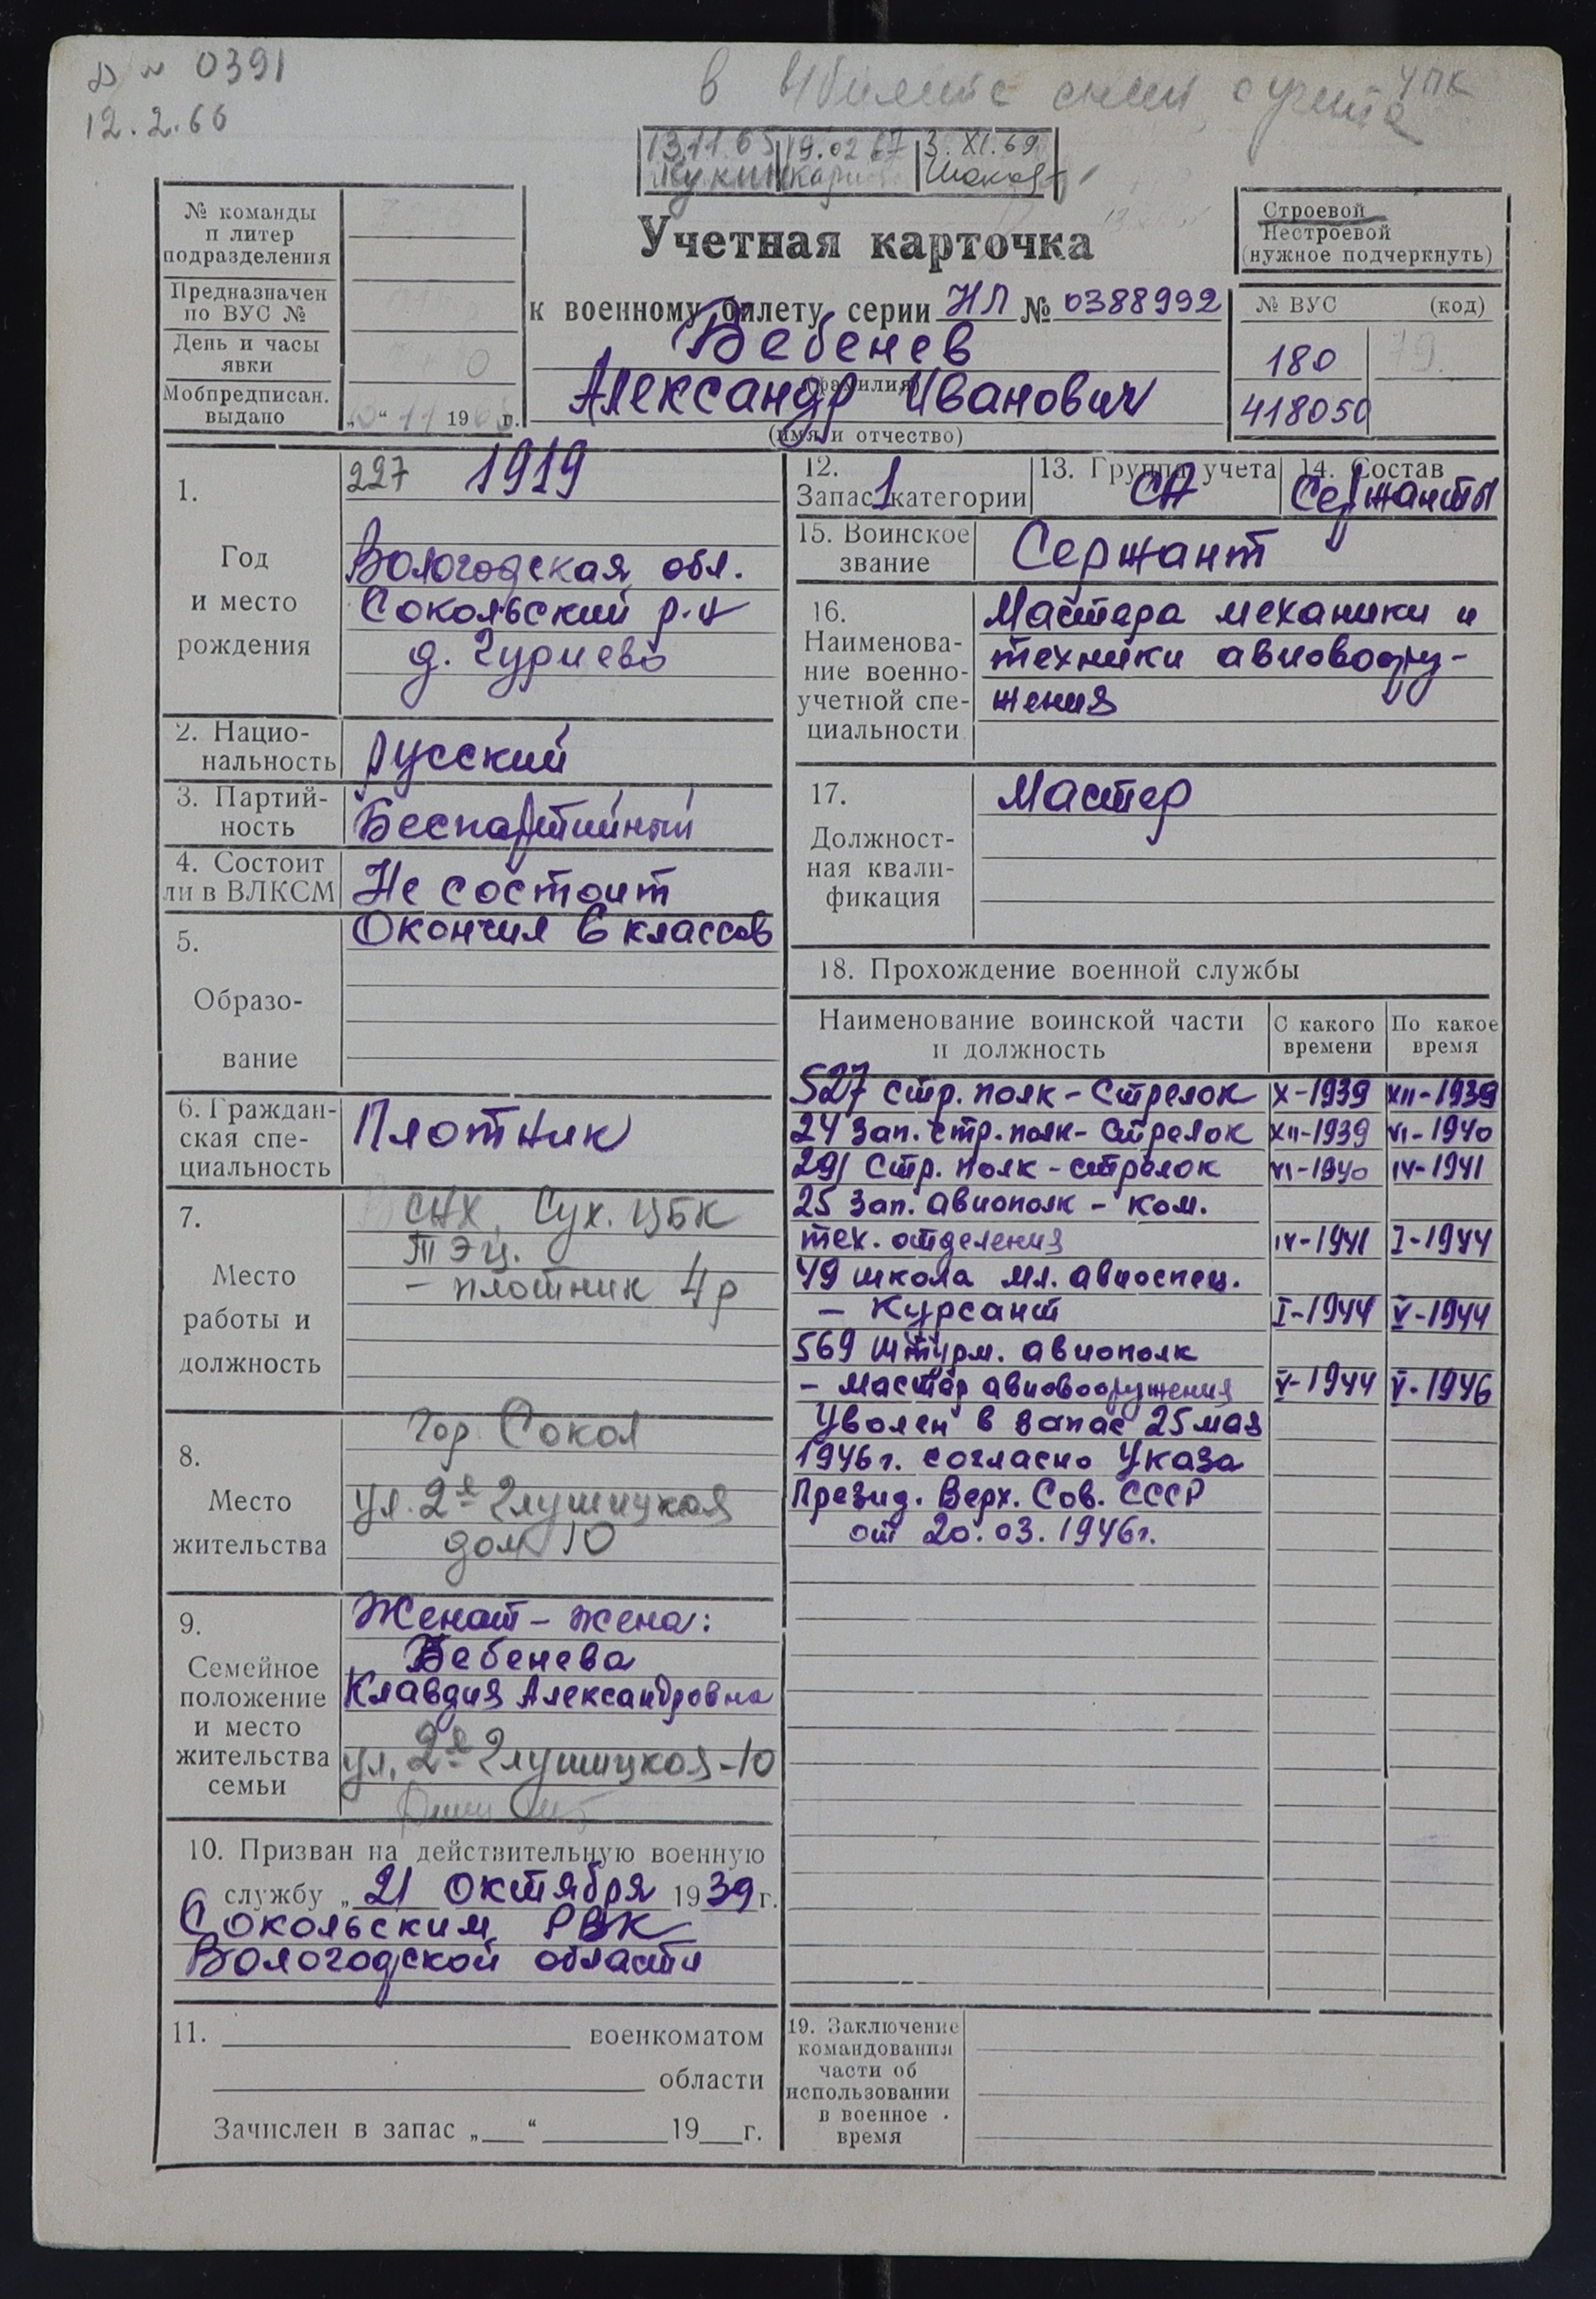 № 0391
12.2.66
в в/билете снят с учета УПК
13.11.65 19.02.67 3.XI.69
№ команды
и литер
подразделения
Предназначен
по ВУС №
День и часы
явки
Мобпредписан.
выдано
„ “ 11 19 г.
Учетная карточка
к военному билету серии НЛ № 0388992
Бебенев
(фамилия)
Александр Иванович
(имя и отчество)
Строевой
Нестроевой
(нужное подчеркнуть)
№ ВУС (код)
180 79.
418050
1.
Год
и место
рождения
227 1919
Вологодская обл.
Сокольский р-н
д. Гуриево
2. Нацио-
нальность
Русский
3. Партий-
ность
Беспартийный
4. Состоит
ли в ВЛКСМ
Не состоит
5.
Образо-
вание
Окончил 6 классов
6. Граждан-
ская спе-
циальность
Плотник
7.
Место
работы и
должность
СНХ, Сух. ЦБК
ТЭЦ.
– плотник 4р
8.
Место
жительства
гор. Сокол
ул. 2я Глушицкая
дом 10
9.
Семейное
положение
и место
жительства
семьи
Женат – жена:
Бебенева
Клавдия Александровна
ул. 2я Глушицкая-10
10. Призван на действительную военную
службу „21 октября 1939 г.
Сокольским РВК
Вологодской области
11. военкоматом
области
Зачислен в запас „ “ 19 г.
12.
Запас 1 категории
13. Группа учета
СА
14. Состав
Сержанты
15. Воинское
звание
Сержант
16.
Наименова-
ние военно-
учетной спе-
циальности
Мастера механики и
техники авиовоору-
жения
17.
Должност-
ная квали-
фикация
Мастер
18. Прохождение военной службы
Наименование воинской части
и должность
С какого
времени
По какое
время
527 стр. полк – Стрелок X-1939 XII-1939
24 зап. стр. полк – Стрелок XII-1939 VI-1940
291 Стр. полк – стрелок VI-1940 IV-1941
25 зап. авиополк – ком.
тех. отделения IV-1941 I-1944
49 школа мл. авиоспец.
– Курсант I-1944 V-1944
569 штурм. авиополк
– мастер авиовооружения V-1944 V-1946
Уволен в запас 25 мая
1946 г. согласно Указа
Презид. Верх. Сов. СССР
от 20.03.1946г.
19. Заключение
командования
части об
использовании
в военное
время